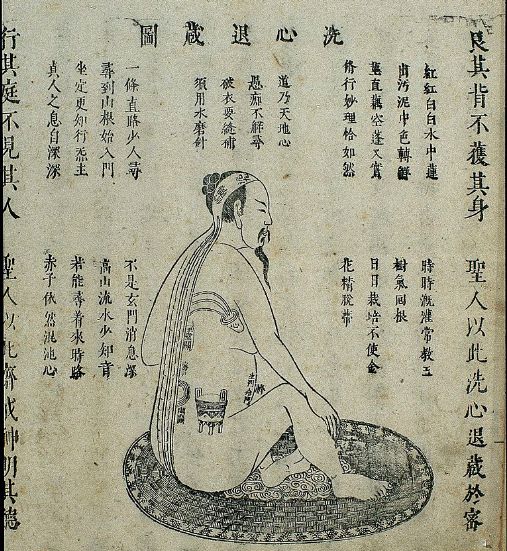 洗心退藏圖
艮其背不獲其身
聖人以此洗心退藏於密
紅紅白白水中蓮
出污泥中色轉鮮
莖直藕空蓬又實
脩行妙理恰如然
道乃天地心
愚痴不解尋
破衣要縫補
須用水磨針
一條直路少人尋
尋到山根始入門
坐定更知行炁主
真人之息自深深
時時漑灌常教玉
樹氣回根
日日栽培不使金
花精脫蒂
不是玄門消息深
高山流水少知音
若能尋着來時路
赤子依然混沌心
行其庭不見其人
聖人以此齊戒神明其德